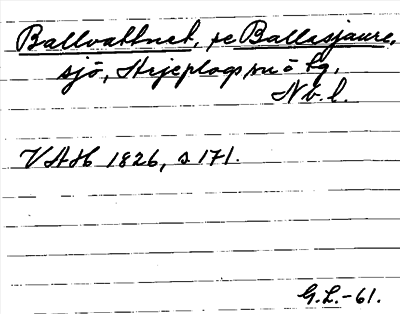 Ballvattnet, se Ballasjaure,
sjö, Arjeplogs sn o tg,
Nb. l.
VAH 1826, s 171.
G.L.-61.